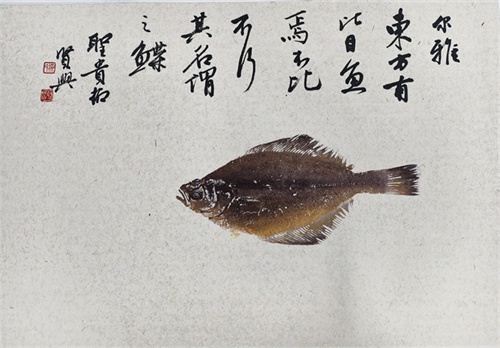 尔雅
東方有
比目魚
焉不比
不行
其名謂
之鰈
聖貴
賢興